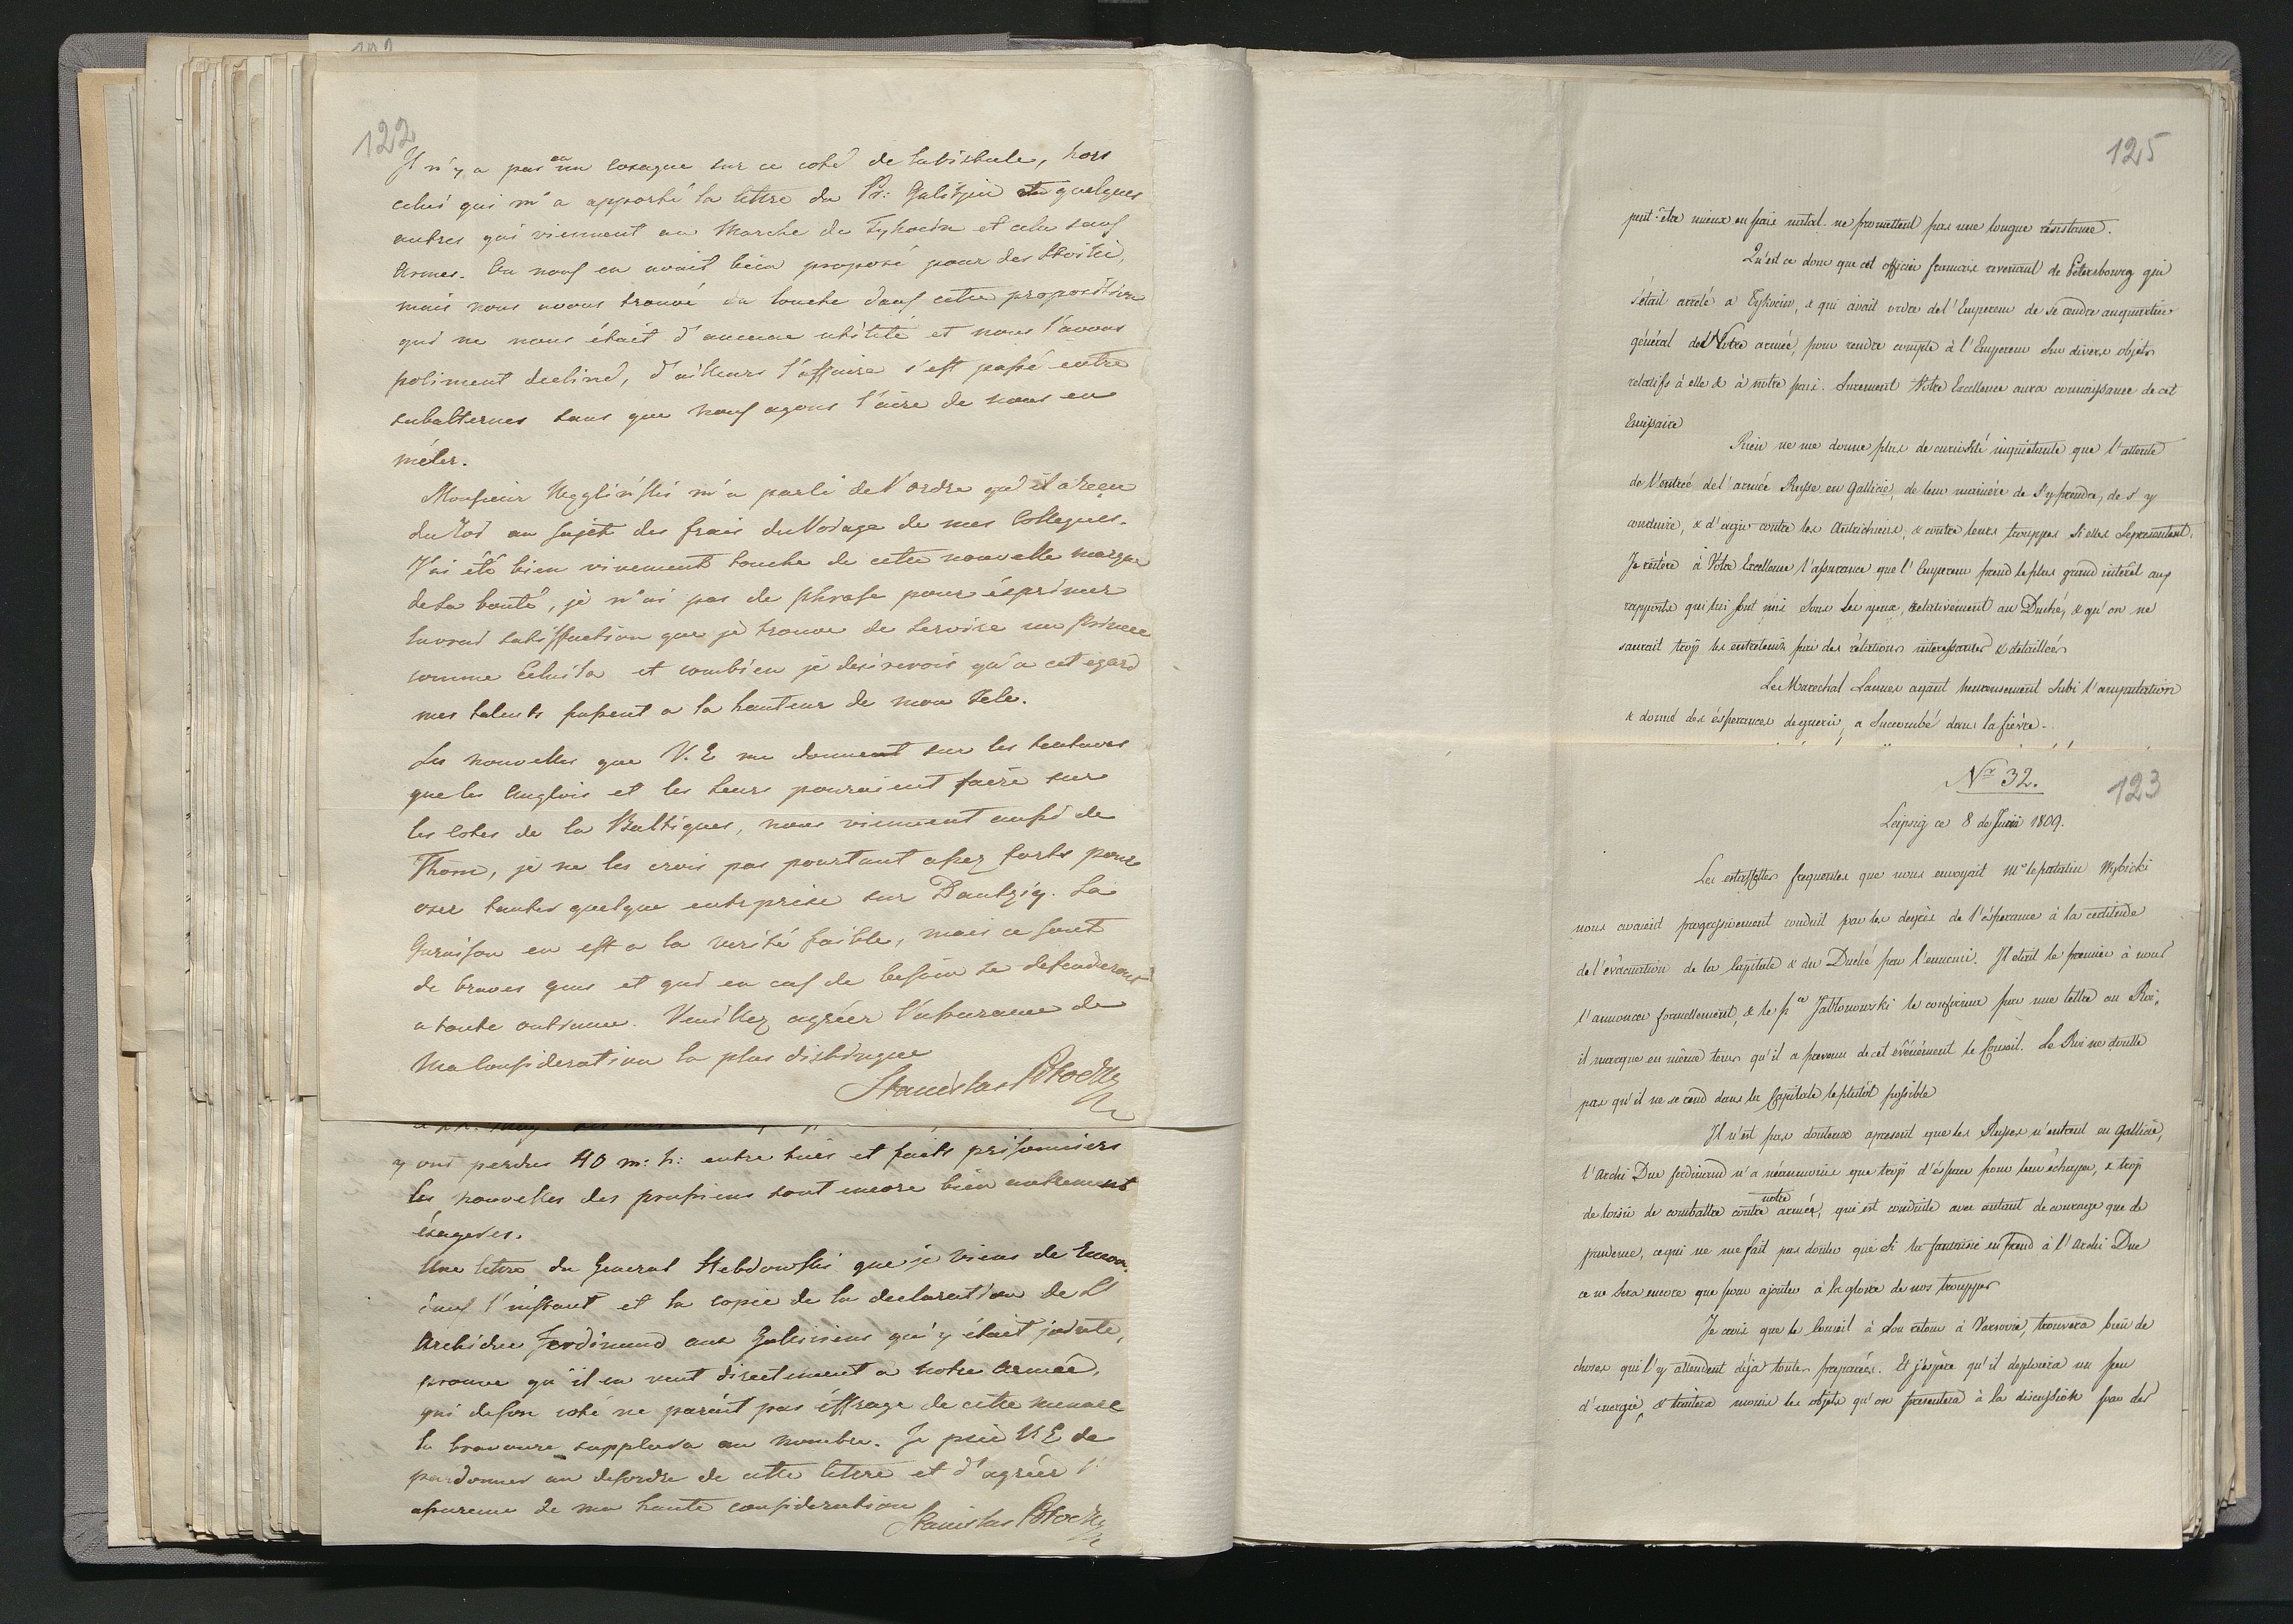 122
Il n'y a pas eu un cosaque sur ce coté de la vistule, hors
celui qui m'a apporté la lettre du Pr: Galitzin et quelques
autres qui viennent au Marche de Tykocin et cela sans
Armes. On nous en avait bien proposé pour des
mais nous avons trouvé du louche dans cette proposition
qui ne nous était d'aucune utilité et nous l'avons
poliment decliné, d'ailleurs l'affaire s'est passé entre
subalternes sans que nous ayons l'aire de nous en
méler.
Monsieur m'a parlé de l'ordre qu'il a Reçu
du Roi au sujet des frais du Voiage de mes Collegues.
J'ai été bien vivement touché de cette nouvelle marque
de sa bonté, je n'ai pas de phrase pour éxprimer
la vraie satisfaction que je trouve de servire un prince
comme Celui la et combien je desirerois qu'a cet égard
mes talents fussent a la hauteur de mon Zele.
Les nouvelles que V. E me donnent sur les tentatives
que les Anglois et les leurs pouraient faire sur
les cotes de la Baltiques, nous viennent aussi de
Thorn, je ne les crois pas pourtant assez forts pour
oser tenter quelque entreprise sur Dantzig. La
Garnison en est a la verité faible, mais ce sont
de braves gens et qui en cas de besoin se defenderont
a toute outrance. Veuillez agréer l'assurance de
Ma Consideration la plus distinguee
Stanislas Potocky
y ont perdus 40 m: h: entre tués et faits prisonniers
les nouvelles des prussiens sont encore bien autrement
éxagerés.
Une lettre du General Hebdowski que je viens de Recevoir
dans l'instant et la copie de la declaration de L'
Archiduc Ferdinand aux Galiciens qui y était jointe,
prouve qu'il en veut directement a notre Armée,
qui de son coté ne parait pas éffrayé de cette menace
la bravoure suppleera au nombre. Je prie V. E de
pardonner au desordre de cette lettre et d'agréer l'
assurance de ma haute consideration
Stanislas Potocky
125
peut-être mieux en pais natal ne promettent pas une longue résistance.
Qu'est ce donc que cet officier francais revenant de Petersbourg qui
s'était arrêté a Tykocin, & qui avait ordre de l'Empereur de se rendre au quartier
général de Notre armée, pour rendre compte à l'Empereur sur divers objets
relatifs à elle & à notre pais. Surement Votre Excellence aura connaissance de cet
Emissaire
Rien ne me donne plus de curiosité inquiétante que l'attente
de l'entrée de l'armée Russe en Gallicie, de leur manière de s'y prendre, de s'y
conduire, & d'agir contre les Autrichiens, & contre leurs trouppes si elles se presentent.
Je réitère à Votre Excellence l'assurance que l'Empereur prend le plus grand intérêt aux
rapports qui lui sont mis sous les yeux, relativement au Duché, & qu'on ne
saurait trop les entretenir par des rélations interessantes & détaillées
Le Marechal Lannes ayant heureusement subi l'amputation
& donné des ésperances de guerir, a succombé dans la fièvre.
Nr 32.
123
Leipzig ce 8 de Juin 1809.
Les estaffettes frequentes que nous envoyait Mr le palatin Wybicki
nous avaient progressivement conduit par les degrés de l'ésperance à la certitude
de l'évacuation de la Capitale & du Duché par l'ennemi. Il etait le premier à nous
l'annoncer formellement, & le pce Jabłonowski le confirme par une lettre au Roi,
il marque en même tems qu'il a prevenu de cet évènement le Conseil. Le Roi ne doutte
pas qu'il ne se rend dans la Capitale le plutôt possible
Il n'est pas douteux apresent que les Russes n'entrent en Gallicie,
l'Archi Duc ferdinand n'a néanmoins que trop d'éspace pour leur échapper, & trop
de loisir de combattre contre notre armée, qui est conduite avec autant de courage que de
prudence, ce qui ne me fait pas douter que si la fantaisie en prend à l'Archi Duc
ce ne sera encore que pour ajouter à la gloire de nos trouppes
Je crois que le Conseil à son retour à Varsovie, trouvera bien de
choses qui l'y attendent déjà toutes preparées. Et j'espère qu'il deploiera un peu
d'energie, & traitera moins les objets qu'on presentera à la discussion par des